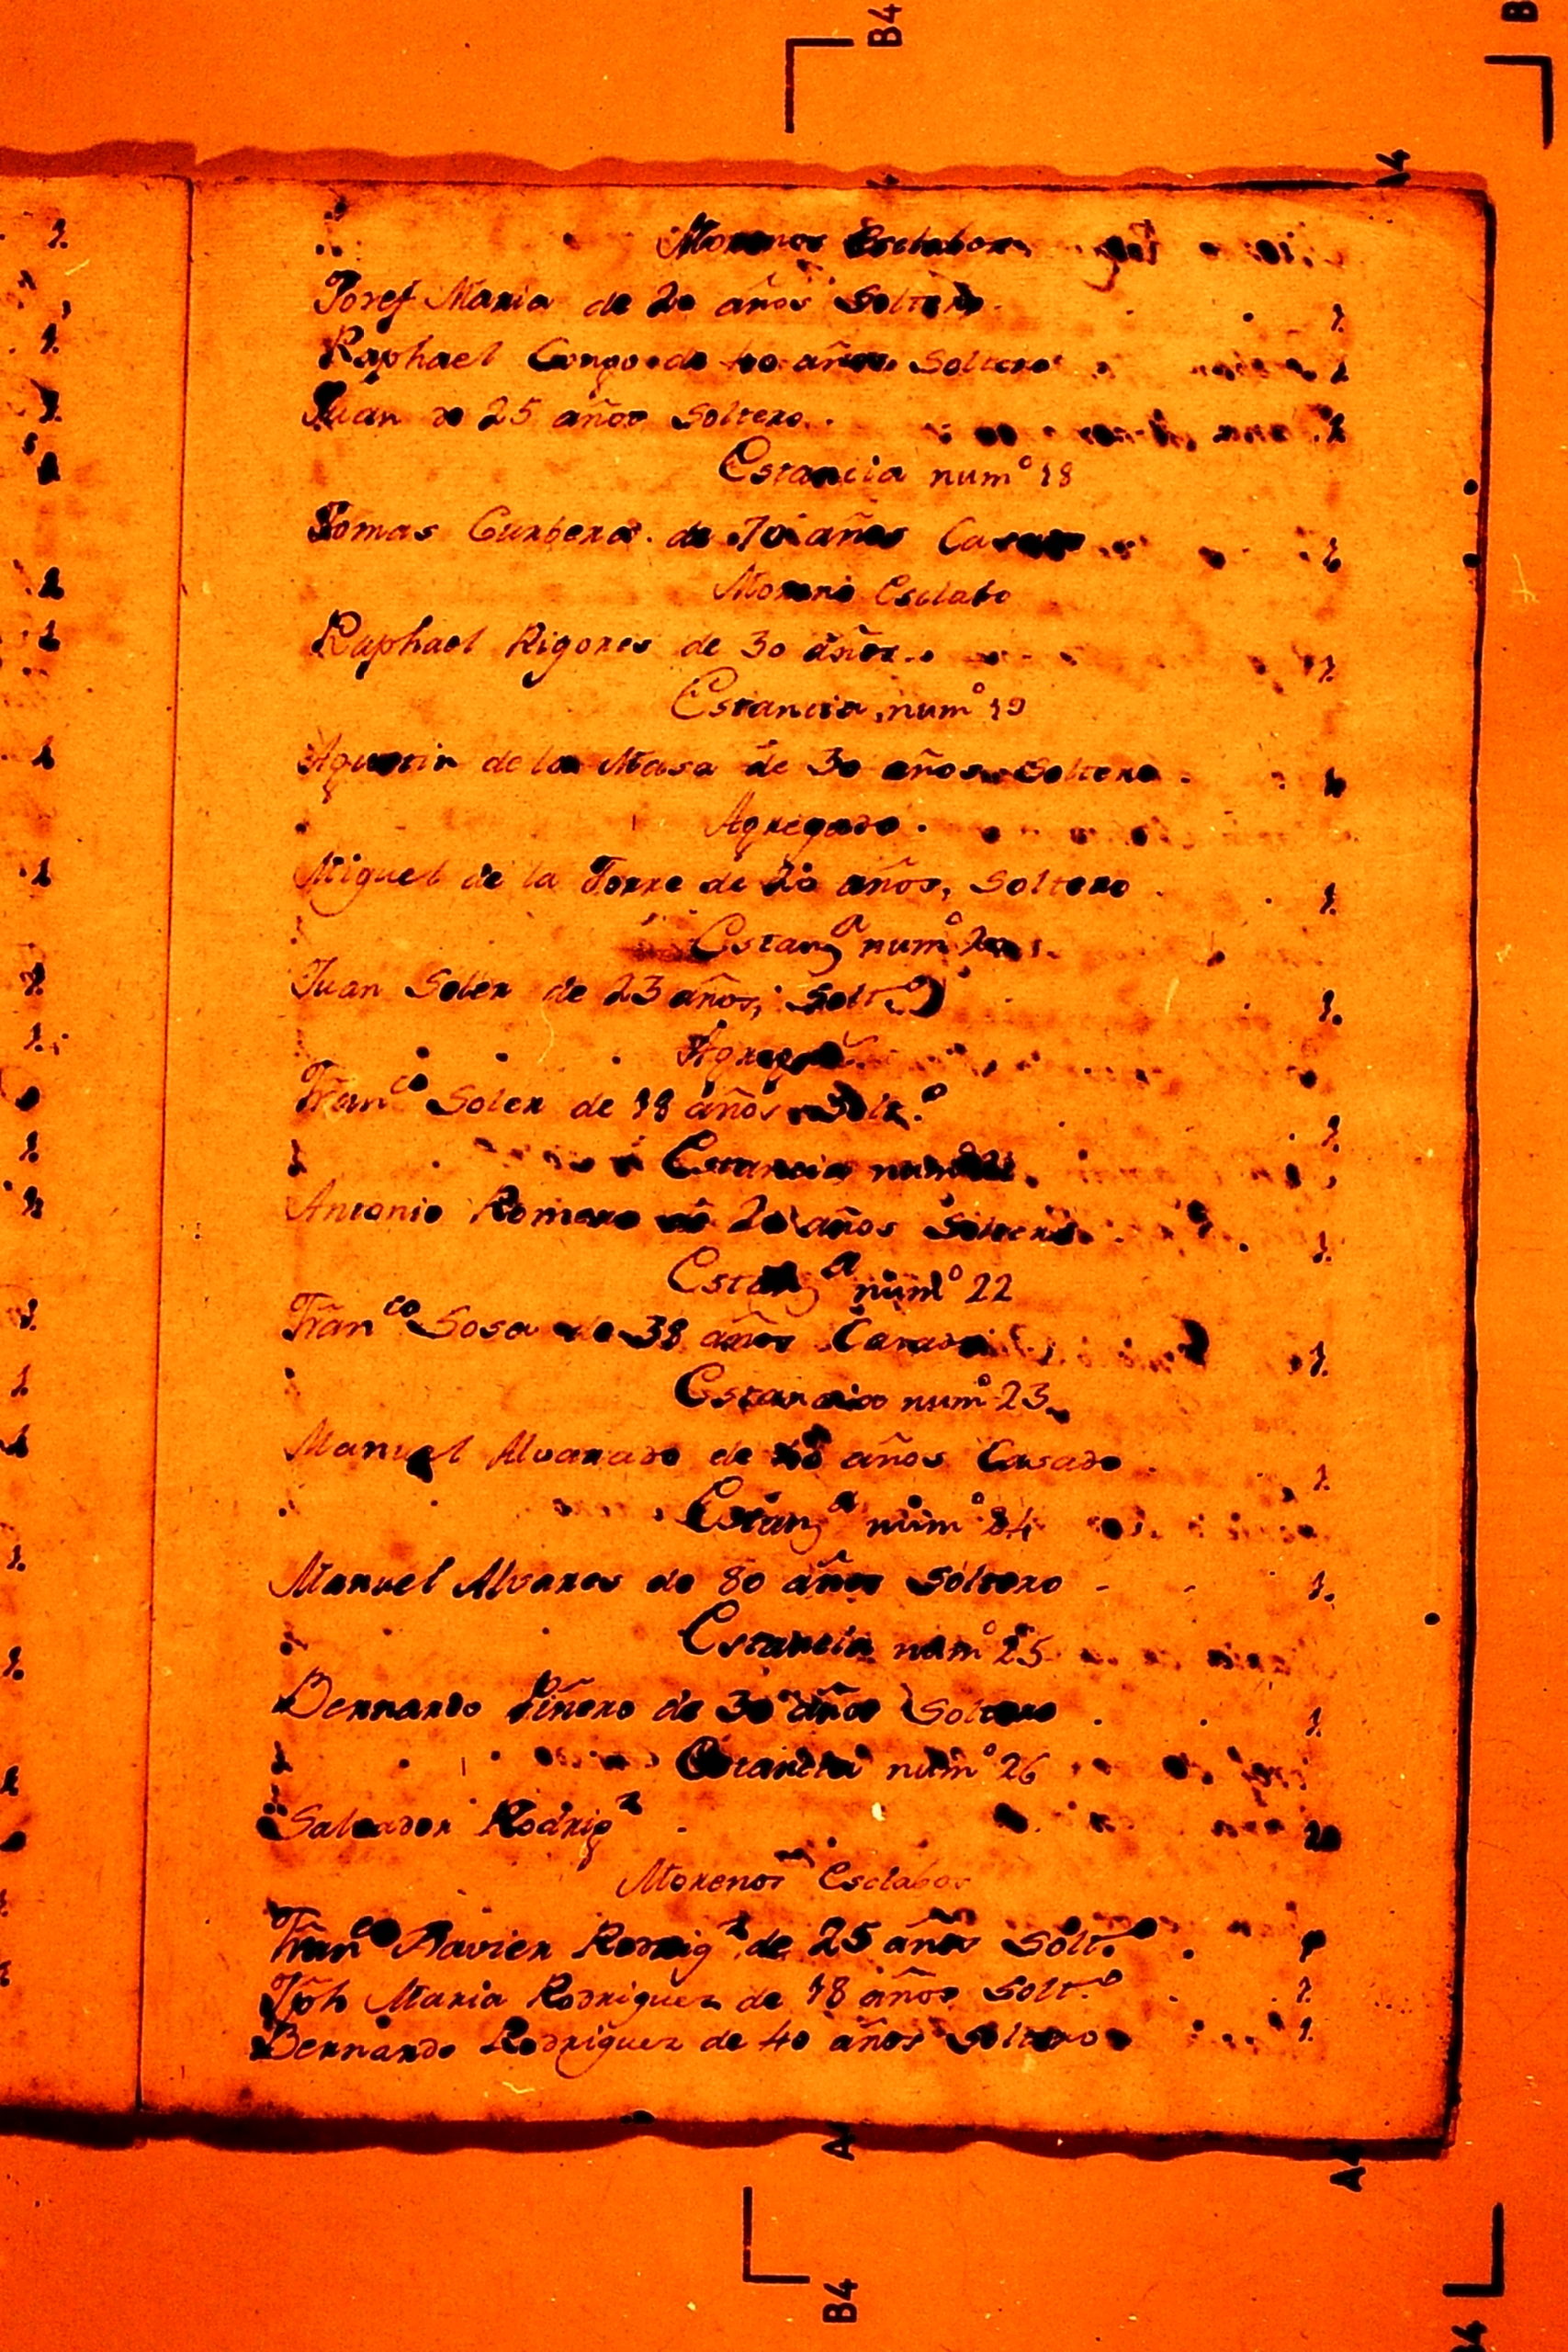 B4
B
A4
Morenos Esclabos
1.
Josef Maria de 20 años Soltero. 1
Raphael Congo de 40 años Soltero 1
Juan de 25 años Soltero. 1
Estancia num.º 18
Tomas Curbera de 70 años Casado 1
Moreno Esclabo
Raphael Rigores de 30 años 1.
Estancia num.º 19
Agustin de la Masa de 30 años Soltero 1
Agregado.
Miguel de la Torre de 20 años, Soltero 1.
Estanª num.º 20
Juan Soler de 23 años, Solt.º 1.
Franco Soler de 18 años Solt.º 1.
Estancia num.º 21
Antonio Romero de 20 años Soltero 1.
Estanª num.º 22
Franco Sosa de 38 años Casado 1.
Estancia num.º 23
Manuel Alvarado de años Casado 1.
Estanª num.º 24
Manuel Alvares de 80 años Soltero 1.
Estancia num.º 25
Bernardo Piñero de 30 años Soltero 1.
Estancia num.º 26
Salvador Rodrigz
Morenos Esclabos
Franco Xavier Rodrigz de 25 años Solt.º 1
Jph Maria Rodriguez de 18 años Solt.º 1
Bernardo Rodriguez de 40 años Soltero 1.
B4